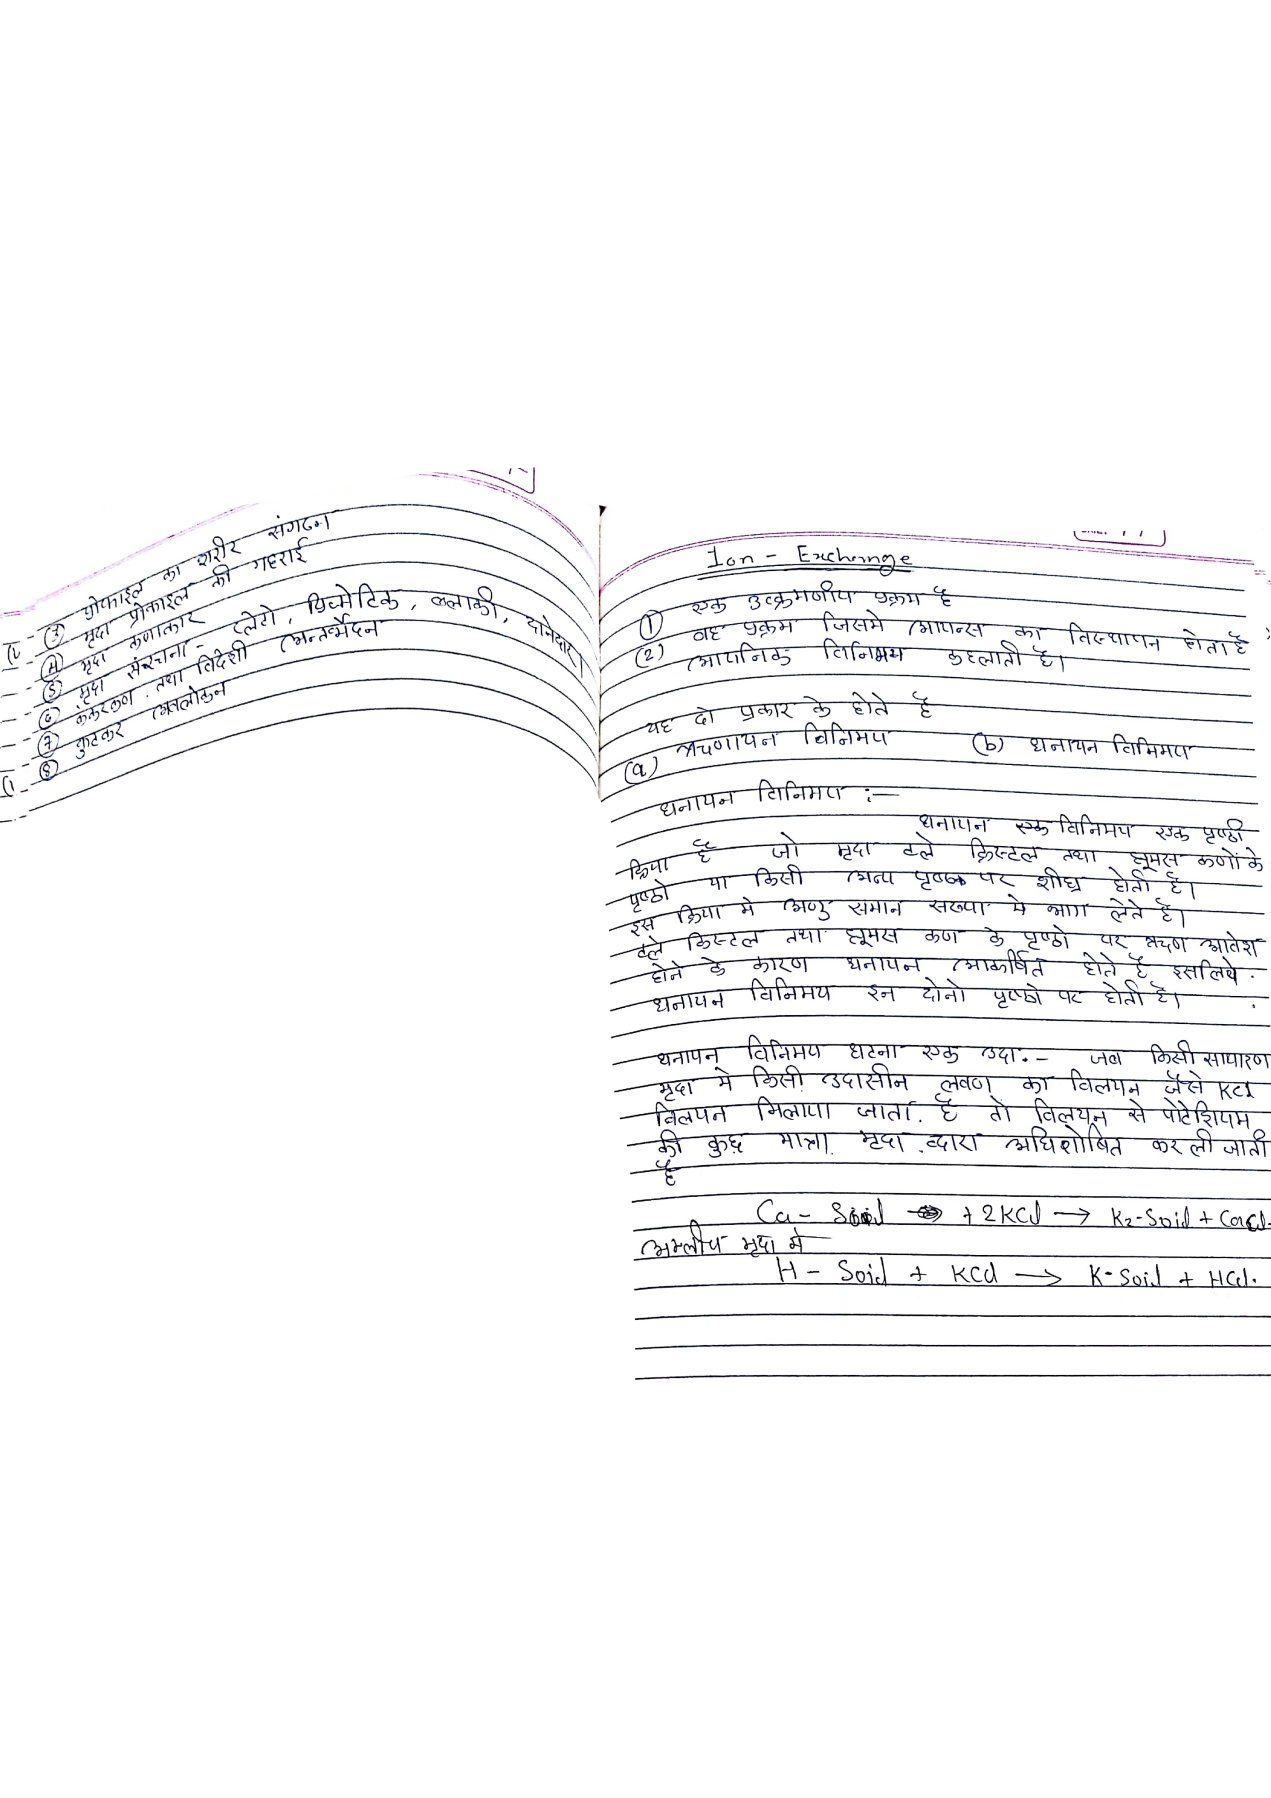 (3) प्रोफाइल का शरीर संगठन
(4) मृदा प्रोफाइल की गहराई
(5) मृदा कणाकार
(6) मृदा संरचना - प्लेटी, प्रिज्मेटिक, ब्लाकी, दानेदार।
(7) कंकरकण तथा विदेशी अन्तर्भेदन
(8) फुटकर अवलोकन
Ion - Exchange
(1) एक उत्क्रमणीय प्रक्रम है
(2) वह प्रक्रम जिसमे आयन्स का विस्थापन होता है
आयनिक विनिमय कहलाती है।
यह दो प्रकार के होते है
(a) ऋणायन विनिमय (b) धनायन विनिमय
धनायन विनिमय :—
धनायन एक विनिमय एक पृष्ठी
क्रिया है जो मृदा क्ले क्रिस्टल तथा ह्यूमस कणों के
पृष्ठो या किसी अन्य पृष्ठ पर शीघ्र होती है।
इस क्रिया मे अणु समान सख्या मे भाग लेते है।
क्ले क्रिस्टल तथा ह्यूमस कण के पृष्ठो पर ऋण आवेश
होने के कारण धनायन आकर्षित होते है इसलिये
धनायन विनिमय इन दोनो पृष्ठो पर होती है।
धनायन विनिमय घटना एक उदा. - जब किसी साधारण
मृदा मे किसी उदासीन लवण का विलयन जैसे KCl
विलयन मिलाया जाता है तो विलयन से पोटेशियम
की कुछ मात्रा मृदा द्वारा अधिशोषित कर ली जाती
है
Ca - Soil + 2KCl → K2-Soil + CaCl
अम्लीय मृदा मे
H - Soil + KCl → K-Soil + HCl.